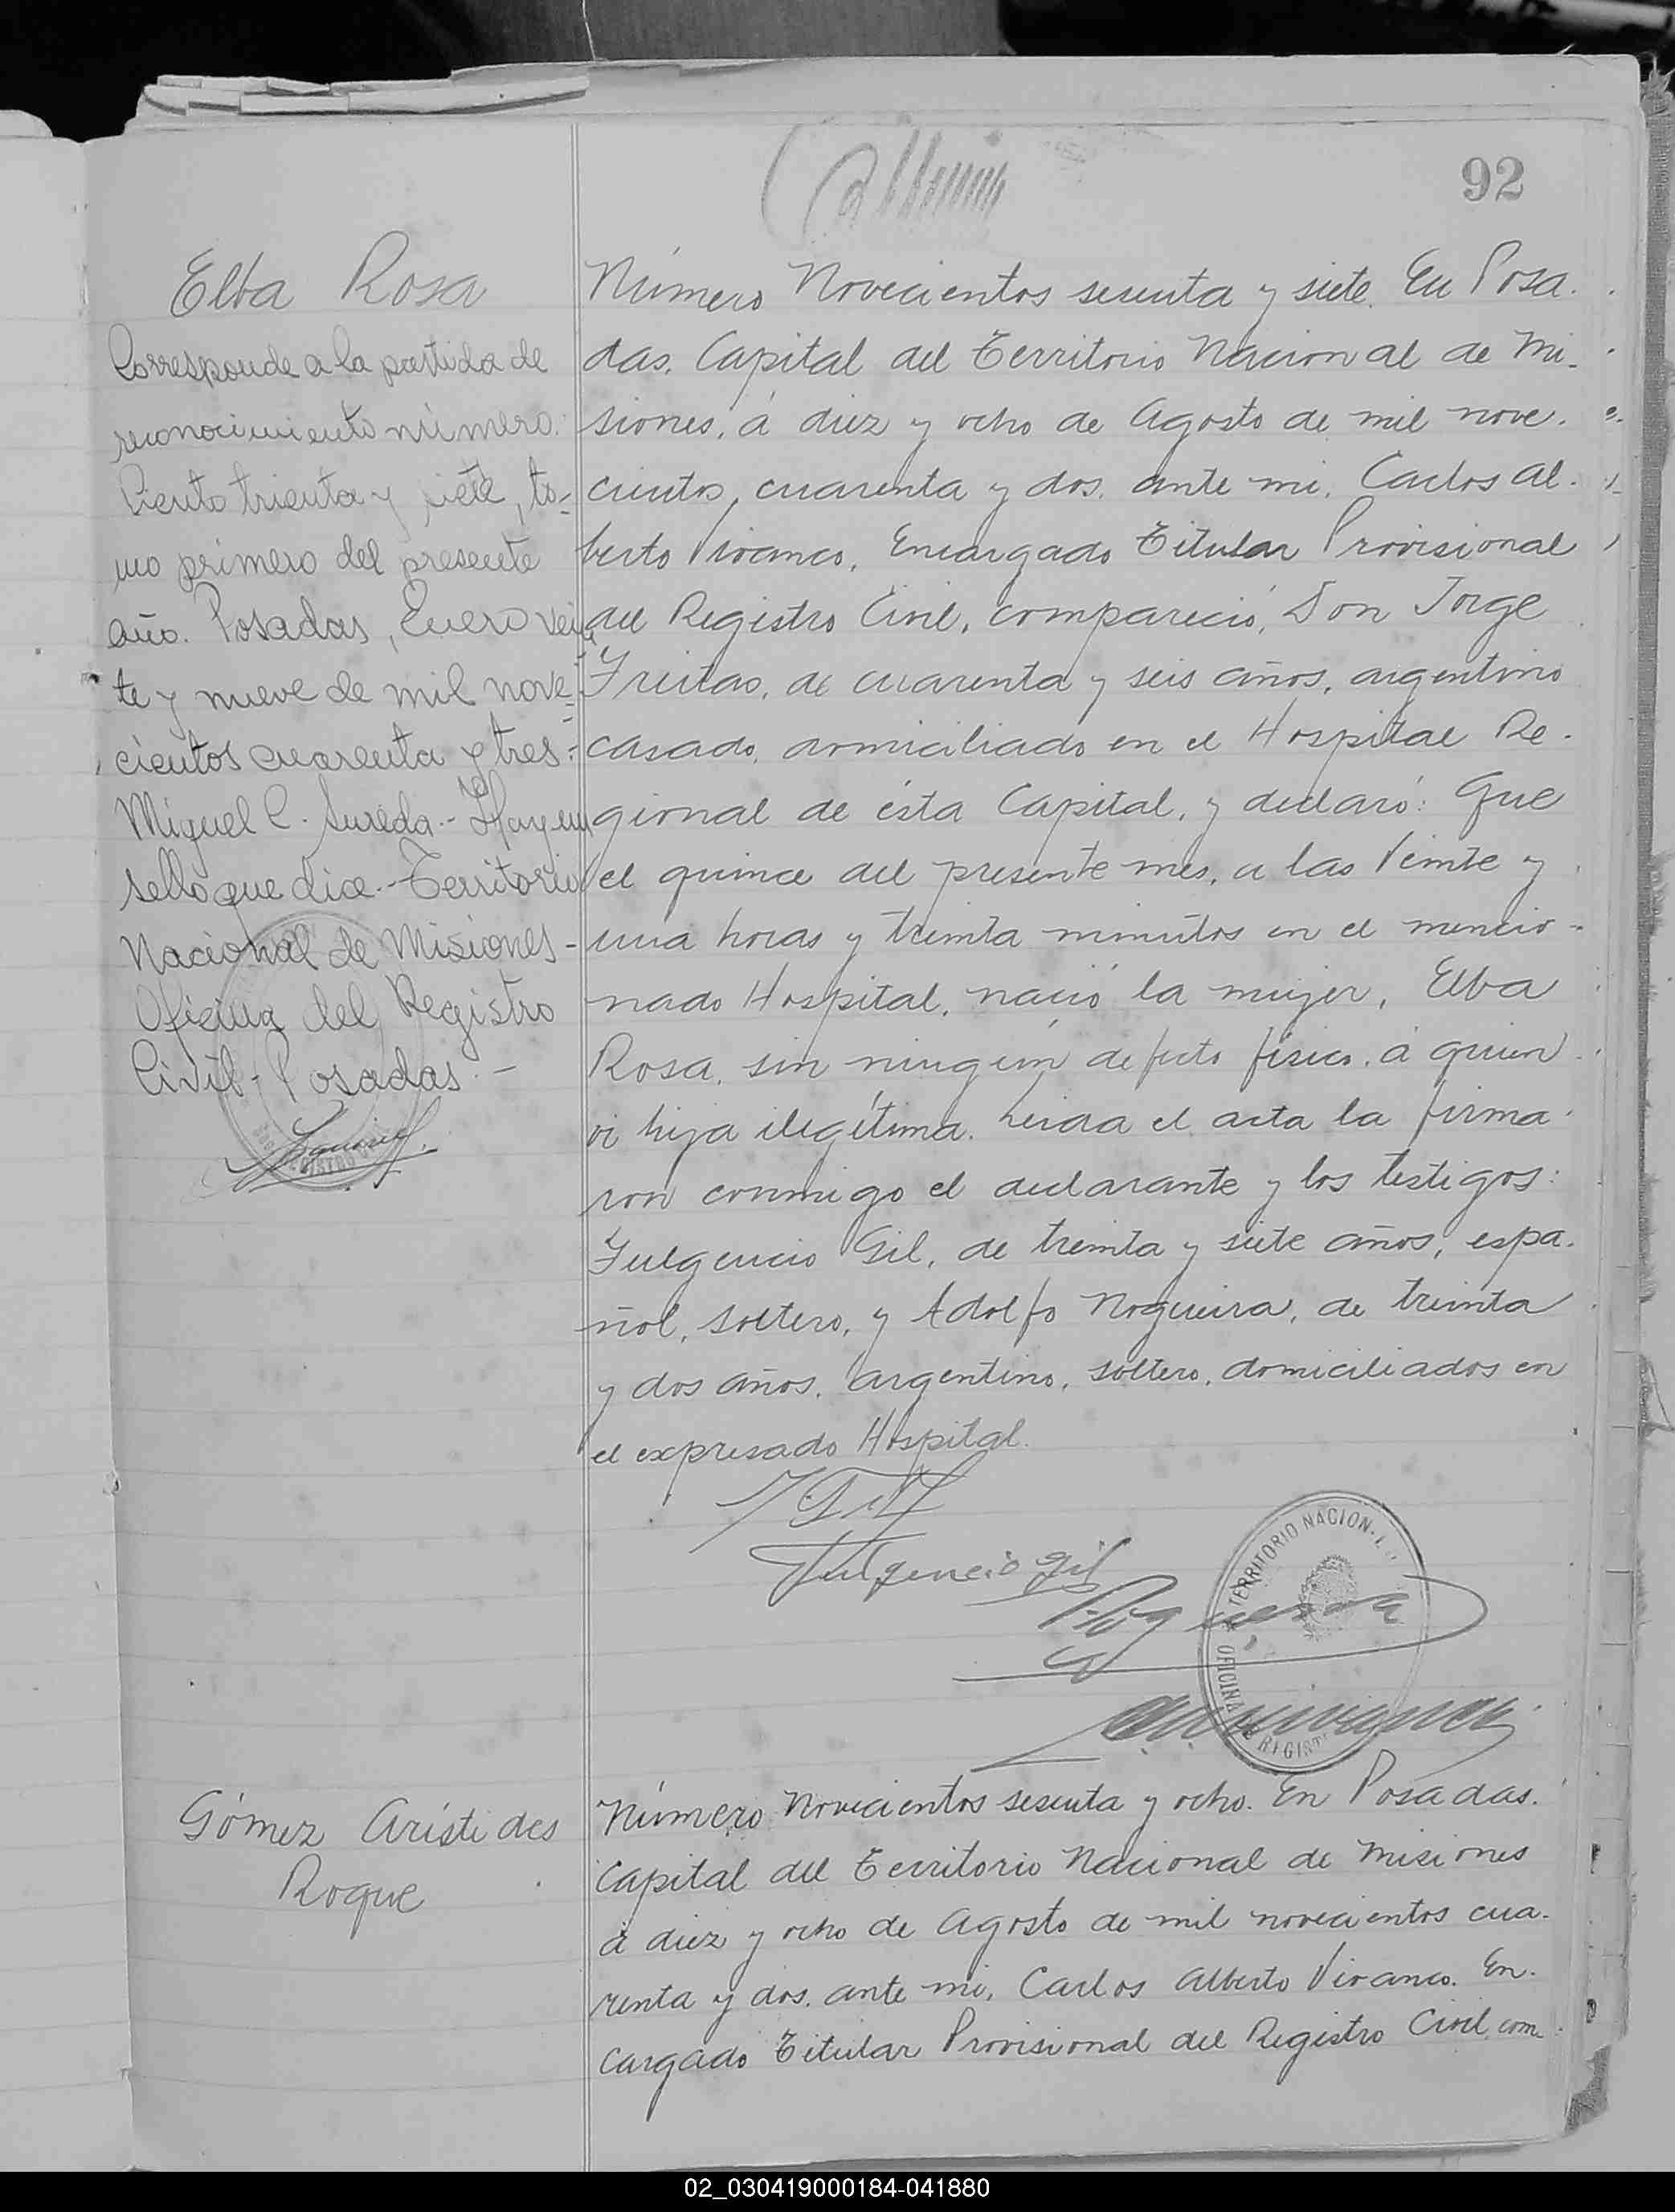 92
Elba Rosa
Corresponde a la partida de
reconocimiento número:
Ciento trienta y siete, to-
mo primero del presente
año. Posadas, Enero vein
te y nueve de mil nove-
cientos cuarenta y tres:
Miguel C. Sureda.- Hay un
sello que dice.- Territorio
Nacional de Misiones-
Oficina del Registro
Civil- Posadas.-
Número Novecientos sesenta y siete. En Posa-
das, Capital del Territorio Nacional de Mi-
siones, á diez y ocho de Agosto de mil nove-
cientos, cuarenta y dos, ante mi, Carlos Al-
berto Vivanco, Encargado Titular Provisional
del Registro Civil, compareció, Don Jorge
Freitas, de cuarenta y seis años, argentino
casado, domiciliado en el Hospital Re-
gional de ésta Capital, y declaró: Que
el quince del presente mes, a las Veinte y
una horas y treinta minutos en el mencio-
nado Hospital, nació la mujer, Elba
Rosa, sin ningún defecto físico, á quien
vi hija ilegítima. Leida el acta la firma-
ron conmigo el declarante y los testigos:
Fulgencio Gil, de treinta y siete años, espa-
ñol, soltero, y Adolfo Nogueira, de treinta
y dos años, argentino, soltero, domiciliados en
el expresado Hospital.
Fulgencio Gil
TERRITORIO NACION
OFICINA REGIST
Gómez Arístides
Roque
Número Novecientos sesenta y ocho. En Posadas.
Capital del Territorio Nacional de Misiones
á diez y ocho de Agosto de mil novecientos cua-
renta y dos, ante mi, Carlos Alberto Vivanco. En-
cargado Titular Provisional del Registro Civil, com-
02_030419000184-041880